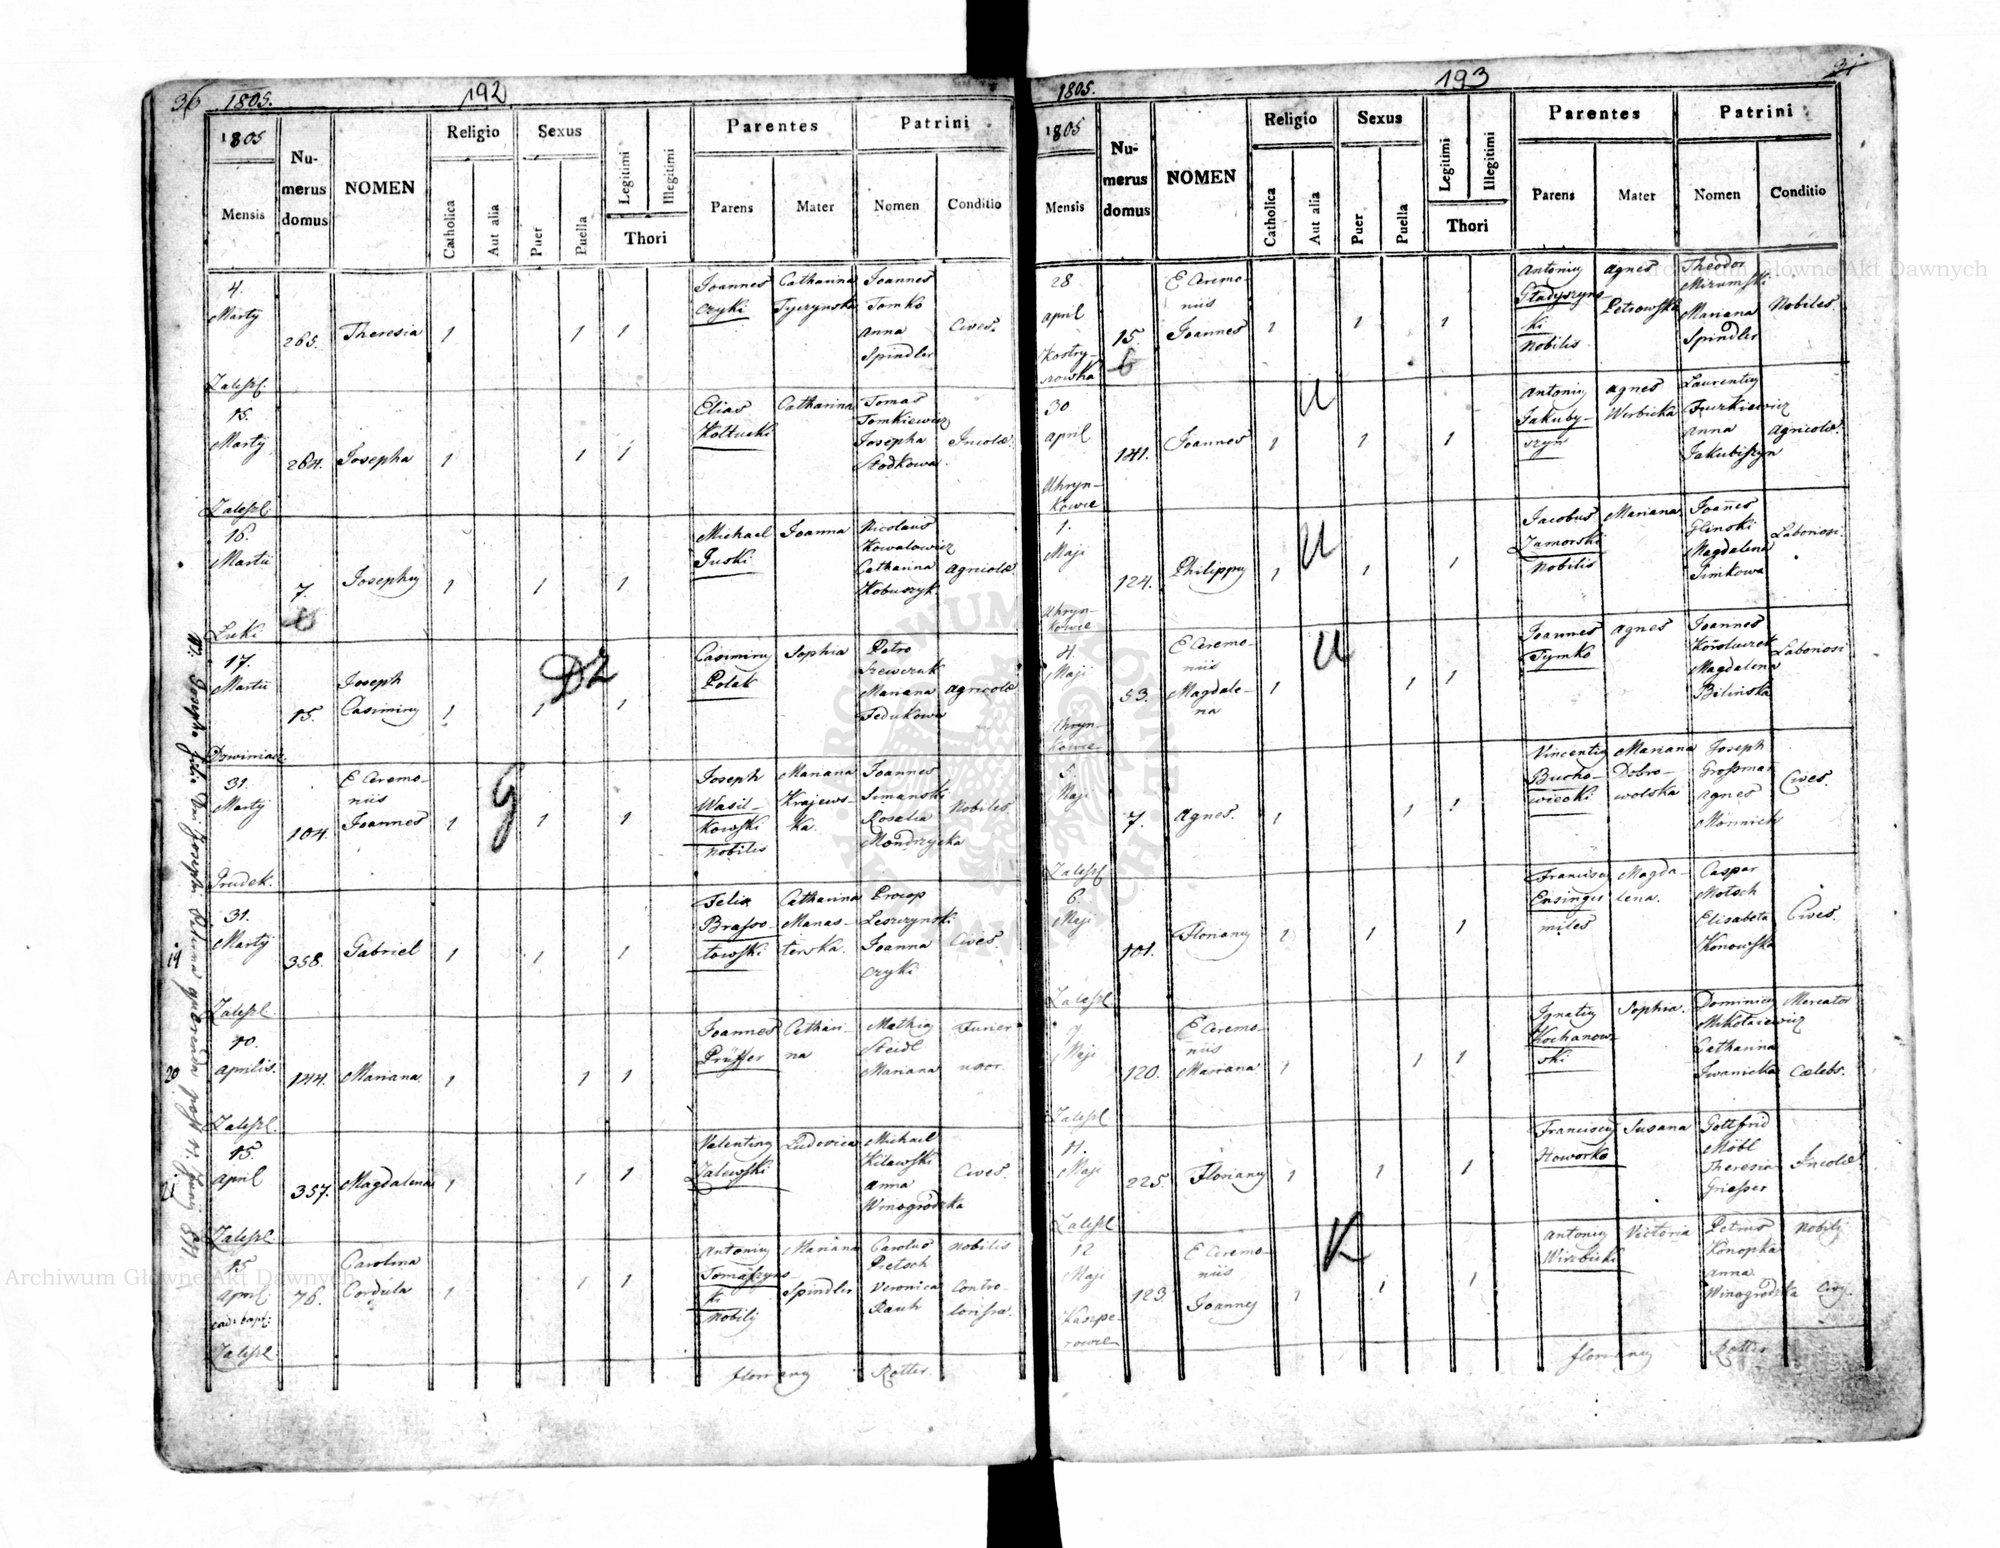 36 1805. 192
1805
Mensis
Nu-
merus
domus
NOMEN
Religio
Catholica
Aut alia
Sexus
Puer
Puella
Legitimi
Illegitimi
Thori
Parentes
Parens
Mater
Patrini
Nomen
Conditio
4.
Marty
Zaleszl.
265.
Theresia
1 1 1
Joannes
Czyki
Catharina
Tyczynska
Joannes
Tomko
Anna
Spindler
Cives.
15.
Marty
Zaleszl
264.
Josepha
1 1 1
Elias
Koltucki
Catharina
Tomas
Tomkiewicz
Josepha
Stodkowa
Incolae.
16.
Martii
Luki
7.
Josephy
1 1 1
Michael
Juski
Joanna
Nicolaus
Kowalowicz
Catharina
Kobuszyk.
Agricolae.
17.
Martii
Dzwiniacz
15.
Joseph
Casimiry
1 DZ 1 1
Casimiry
Polak
Sophia
Petro
Szewczuk
Mariana
Fedukowa
Agricolae
31.
Marty
Grudek.
104.
E Ceremo-
niis
Joannes
1 G 1 1
Joseph
Wasil-
kowski
Nobilis
Mariana
Krajews-
ka.
Joannes
Simanski
Rosalia
Mondrzycka
Nobiles
31.
Marty
Zaleszl
358.
Gabriel
1 1 1
Felix
Brasso-
towski
Catharina
Manas-
terska.
Procop
Leszczynsk.
Joanna
Czyki
Cives.
10.
Aprilis.
Zaleszl.
144.
Mariana
1 1 1
Joannes
Prüffer
Cathari-
na
Mathia
Steidl
Mariana
Furier
uxor.
15.
April
Zaleszl
357.
Magdalena
1 1 1
Valentiny
Zalewski
Ludovica
Michael
Kilawski
Anna
Winogrodzka
Cives.
15
April
ead: bapt:
Zaleszl
76.
Carolina
Cordula
1 1 1
Antoniy
Tomaszyns-
ki
Nobily
Mariana
Spindler
Carolus
Pietsch
Veronica
Rauh
Nobilis
Contro-
lorissa.
floriany Rotter
19
20
21
1805. 193
1805
Mensis
Nu-
merus
domus
NOMEN
Religio
Catholica
Aut alia
Sexus
Puer
Puella
Legitimi
Illegitimi
Thori
Parentes
Parens
Mater
Patrini
Nomen
Conditio
28
April
Kostry-
zowka
15.
E Ceremo-
niis
Joannes
1 1 1
Antoniy
Gladyszyns-
ki
Nobilis
Agnes
Petrowska
Theodor
Mizumski
Mariana
Spindler
Nobiles.
30
April
Uhryn-
kowce
141.
Joannes
1 U 1 1
Antoniy
Jakuby-
szyn
Agnes
Werbicka
Laurentiy
Juzkiewicz
Anna
Jakubiszyn
Agricolae.
1.
Maji
Uhryn-
kowce
124.
Philippy
1 U 1 1
Jacobus
Zamorski
Nobilis
Mariana
Joannes
Glinski
Magdalena
Simkowa
Laboriosi
4.
Maji
Uhryn-
kowce
53.
E Ceremo-
niis
Magdale-
na
1 U 1 1
Joannes
Tymko
Agnes
Joannes
Magdalena
Bilinska
Laboriosi
5.
Maji
Zaleszl
7.
Agnes.
1 1 1
Vincentiy
Bucho-
wiecki
Mariana
Dobro-
wolska
Joseph
Grossman
Agnes
Mönnich
Cives.
6.
Maji
Zaleszl
101.
Floriany
1 1 1
Franciscy
Ensinger
miles
Magda-
lena.
Caspar
Motsch
Elisabeta
Konowska
Cives.
9
Maji
Zaleszl
120.
E Ceremo-
niis
Mariana
1 1 1
Ignatiy
Kochanow-
ski
Sophia.
Dominicy
Mikolaiewicz
Catharina
Iwanicka
Mercator
Caelebs.
11.
Maji
Zaleszl
225.
Floriany
1 1 1
Franciscy
Howorko
Susana
Gottfrid
Möbl
Theresia
Griesser
Incolae
12
Maji
Kaszpe-
rowce
123
E Ceremo-
niis
Joannes
1 K 1 1
Antoniy
Wirzbicki
Victoria
Petrus
Konopka
Anna
Winogrodzka
Nobily
Civy.
floriany Rotter
Archiwum Główne Akt Dawnych
Archiwum Główne Akt Dawnych